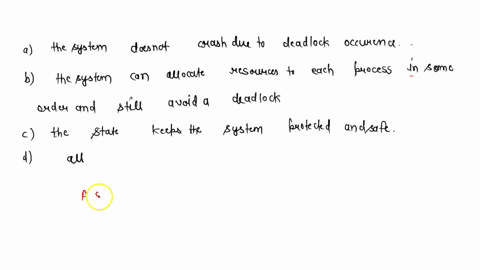 a) the system doesnot crash due to deadlock occurence.
b) the system can allocate resources to each process in some
order and still avoid a deadlock
c) the state keeps the system protected and safe.
d) all
A s